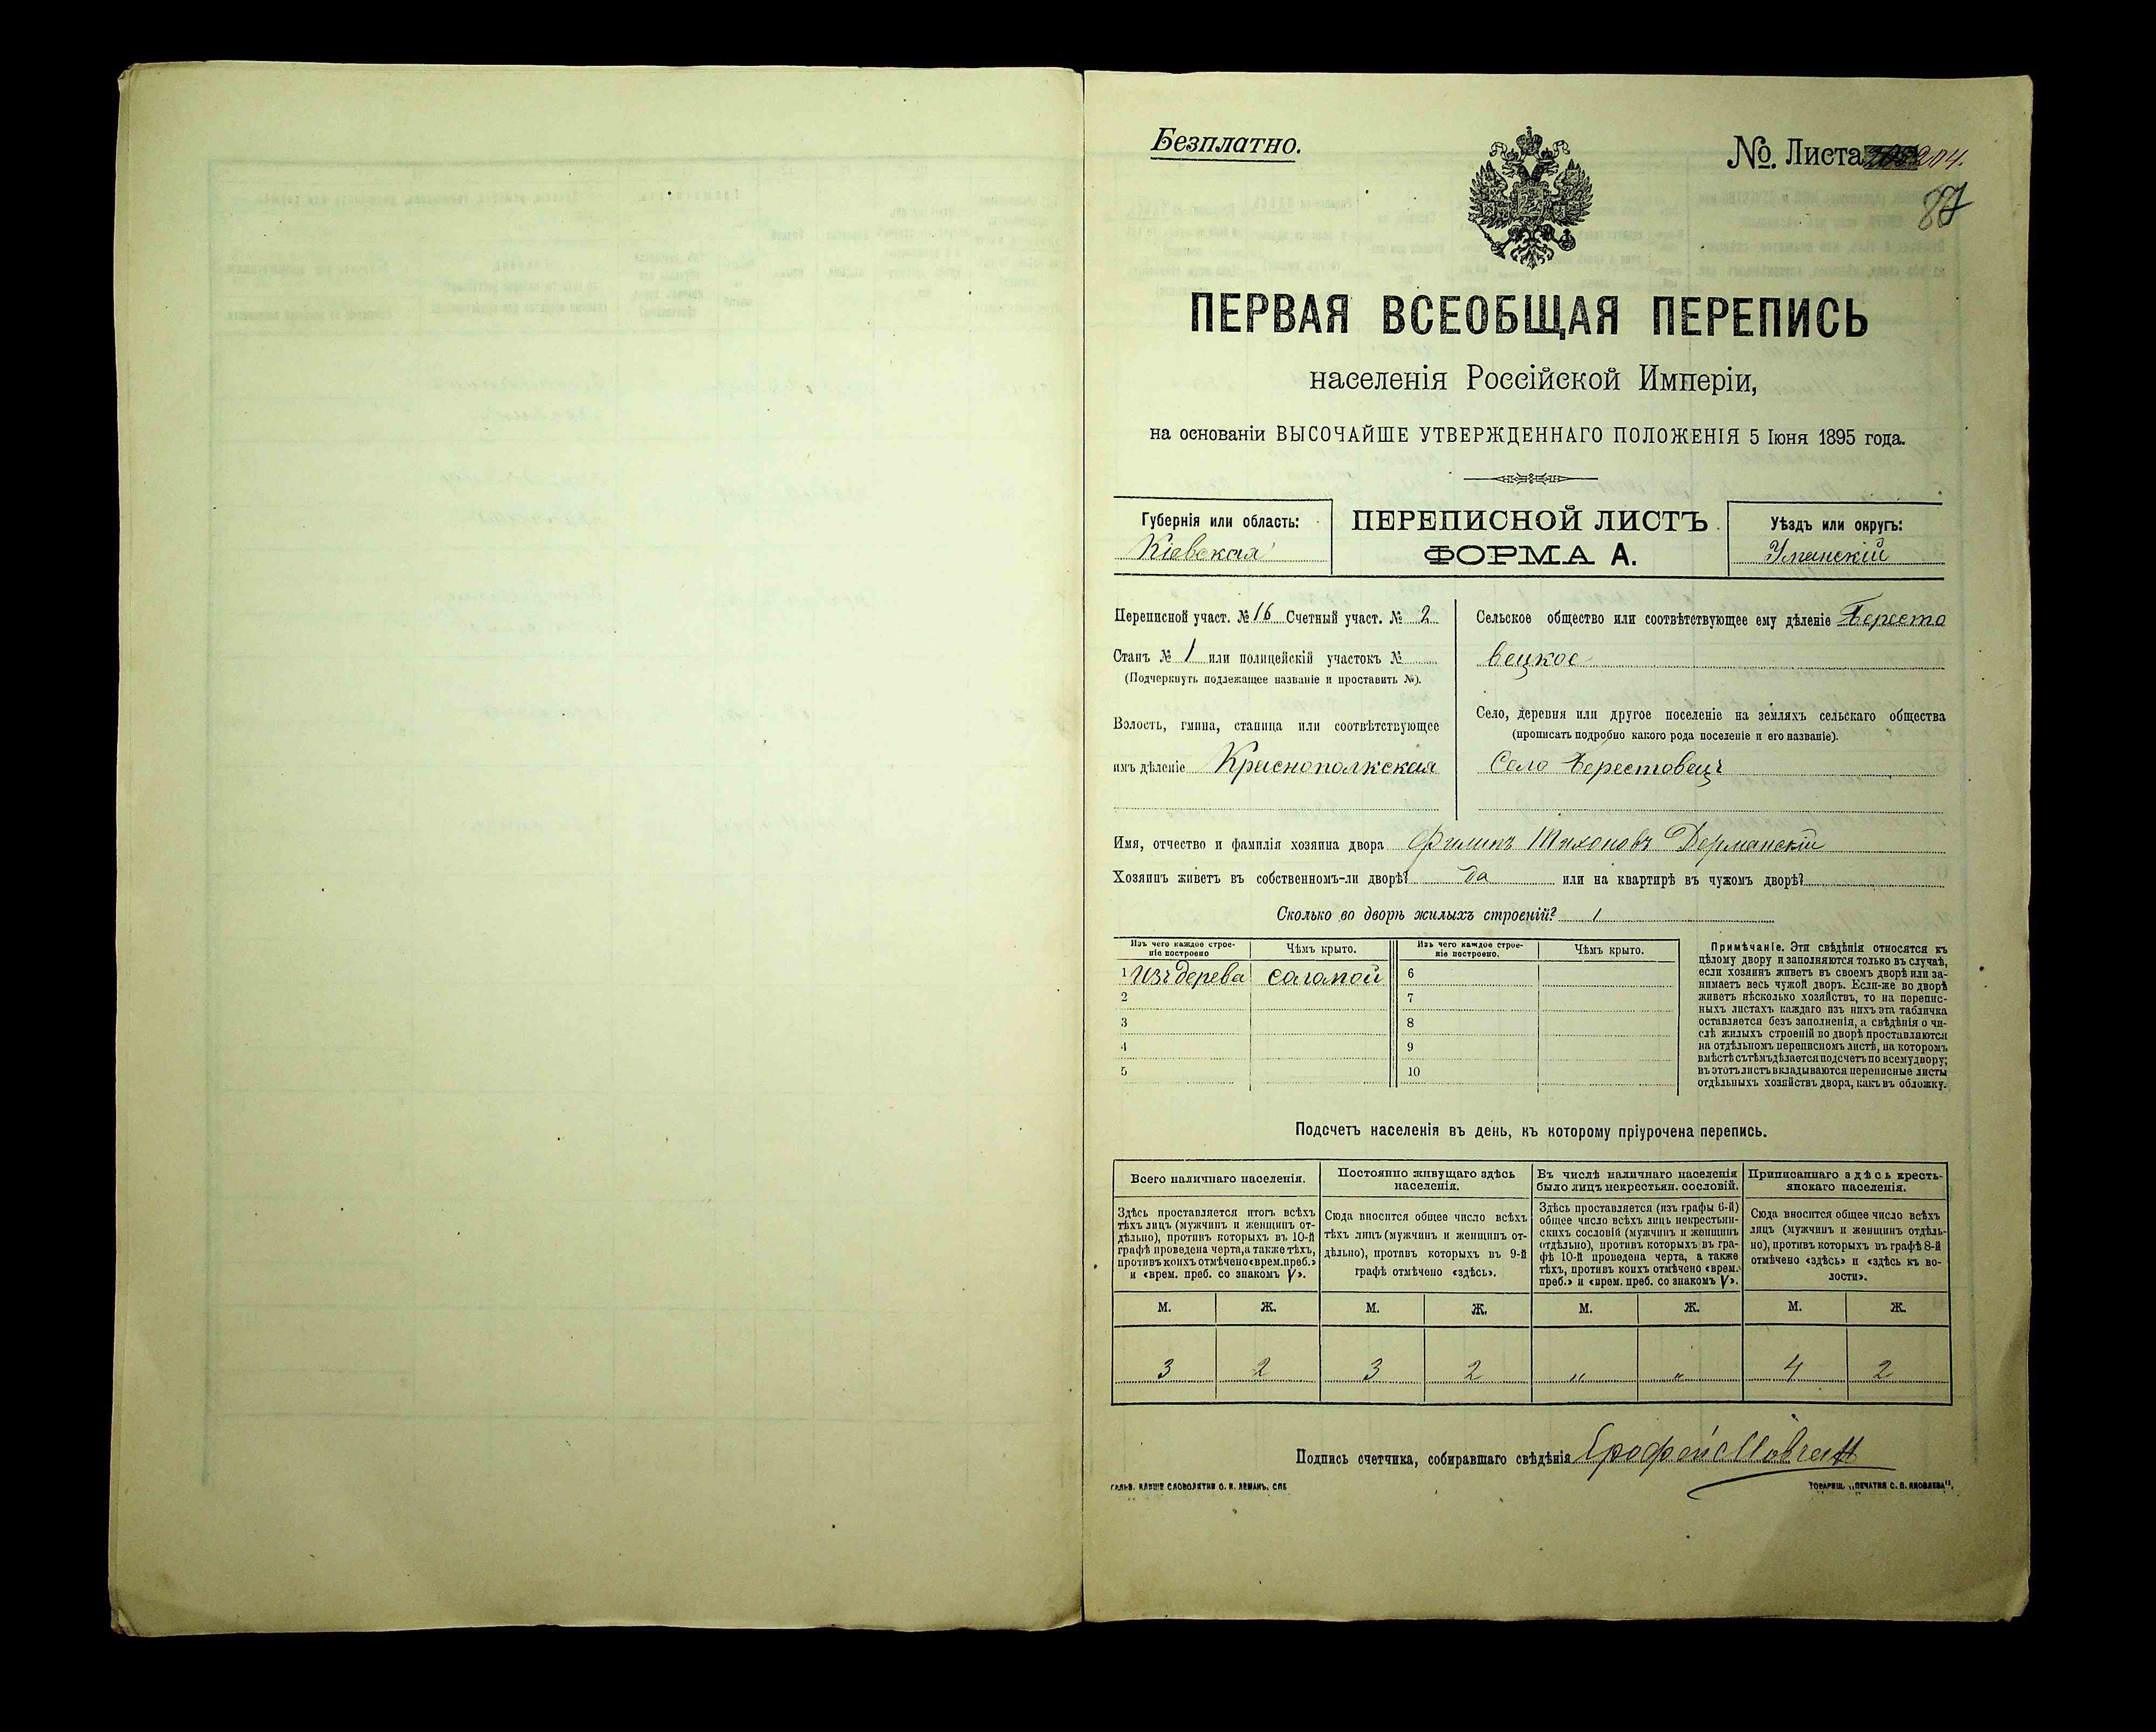 Безплатно.
№. Листа 204.
87
ПЕРВАЯ ВСЕОБЩАЯ ПЕРЕПИСЬ
населенія Россійской Имперіи,
на основаніи ВЫСОЧАЙШЕ УТВЕРЖДЕННАГО ПОЛОЖЕНІЯ 5 Іюня 1895 года.
Губернія или область:
Кіевская
ПЕРЕПИСНОЙ ЛИСТЪ
ФОРМА А.
Уѣздъ или округъ:
Уманскій
Переписной участ. № 16 Счетный участ. № 2
Станъ № 1 или полицейскій участокъ №
(Подчеркнуть подлежащее названіе и проставить №).
Волость, гмина, станица или соотвѣтствующее
имъ дѣленіе Краснополкская
Сельское общество или соотвѣтствующее ему дѣленіе Бересто
вецкое
Село, деревня или другое поселеніе на земляхъ сельскаго общества
(прописать подробно какого рода поселеніе и его названіе).
Село Берестовецъ
Имя, отчество и фамилія хозяина двора Филипъ Тихоновъ Дерманскій
Хозяинъ живетъ въ собственномъ-ли дворѣ? да или на квартирѣ въ чужомъ дворѣ?
Сколько во дворѣ жилыхъ строеній? 1
Изъ чего каждое строе-
ніе построено
Чѣмъ крыто.
Изъ чего каждое строе-
ніе построено.
Чѣмъ крыто.
1 Изъ дерева саломой 6
2 7
3 8
4 9
5 10
Примѣчаніе. Эти свѣдѣнія относятся къ
цѣлому двору и заполняются только въ случаѣ,
если хозяинъ живетъ въ своемъ дворѣ или за-
нимаетъ весь чужой дворъ. Если-же во дворѣ
живетъ нѣсколько хозяйствъ, то на перепис-
ныхъ листахъ каждаго изъ нихъ эта табличка
оставляется безъ заполненія, а свѣдѣнія о чи-
слѣ жилыхъ строеній во дворѣ проставляются
на отдѣльномъ переписномъ листѣ, на которомъ
вмѣстѣ съ тѣмъ дѣлается подсчетъ по всему двору;
въ этотъ листъ вкладываются переписные листы
отдѣльныхъ хозяйствъ двора, какъ въ обложку.
Подсчетъ населенія въ день, къ которому пріурочена перепись.
Всего наличнаго населенія.
Здѣсь проставляется итогъ всѣхъ
тѣхъ лицъ (мужчинъ и женщинъ от-
дѣльно), противъ которыхъ въ 10-й
графѣ проведена черта, а также тѣхъ,
противъ коихъ отмѣчено «врем. преб.»
и «врем. преб. со знакомъ V».
Постоянно живущаго здѣсь
населенія.
Сюда вносится общее число всѣхъ
тѣхъ лицъ (мужчинъ и женщинъ от-
дѣльно), противъ которыхъ въ 9-й
графѣ отмѣчено «здѣсь».
Въ числѣ наличнаго населенія
было лицъ некрестьян. сословій.
Здѣсь проставляется (изъ графы 6-й)
общее число всѣхъ лицъ некрестьян-
скихъ сословій (мужчинъ и женщинъ
отдѣльно), противъ которыхъ въ гра-
фѣ 10-й проведена черта, а также
тѣхъ, противъ коихъ отмѣчено «врем.
преб.» и «врем. преб. со знакомъ V».
Приписаннаго здѣсь кресть-
янскаго населенія.
Сюда вносится общее число всѣхъ
лицъ (мужчинъ и женщинъ отдѣль-
но), противъ которыхъ въ графѣ 8-й
отмѣчено «здѣсь» и «здѣсь къ во-
лости».
М. Ж. М. Ж. М. Ж. М. Ж.
3 2 3 2 „ „ 4 2
Подпись счетчика, собиравшаго свѣдѣнія Ерофей
ГАЛЬВ. КЛИШЕ СЛОВОЛИТНИ О. И. ЛЕМАНЪ, СПБ
ТОВАРИЩ. „ПЕЧАТНЯ С. П. ЯКОВЛЕВА".